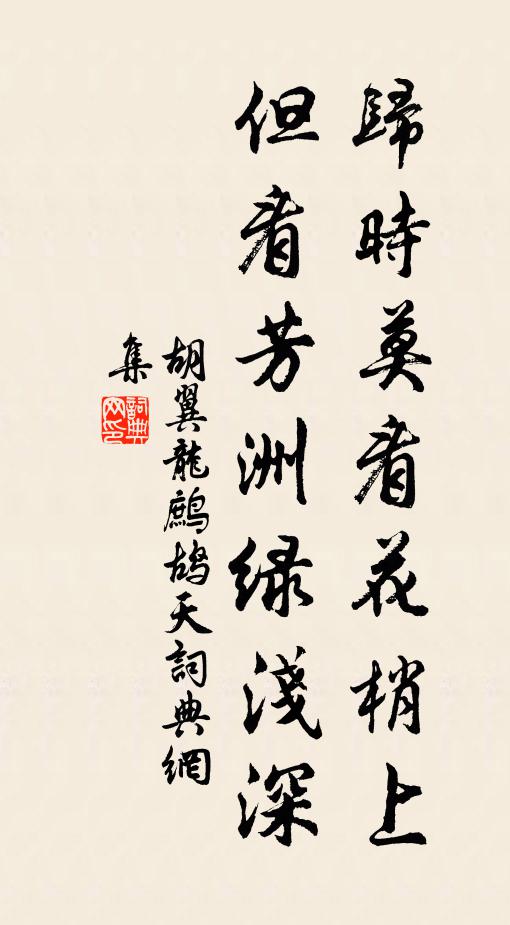 歸時莫看花梢上
但看芳洲绿淺深
胡翼龍鷓鴣天詞典網
集
詞典
网印